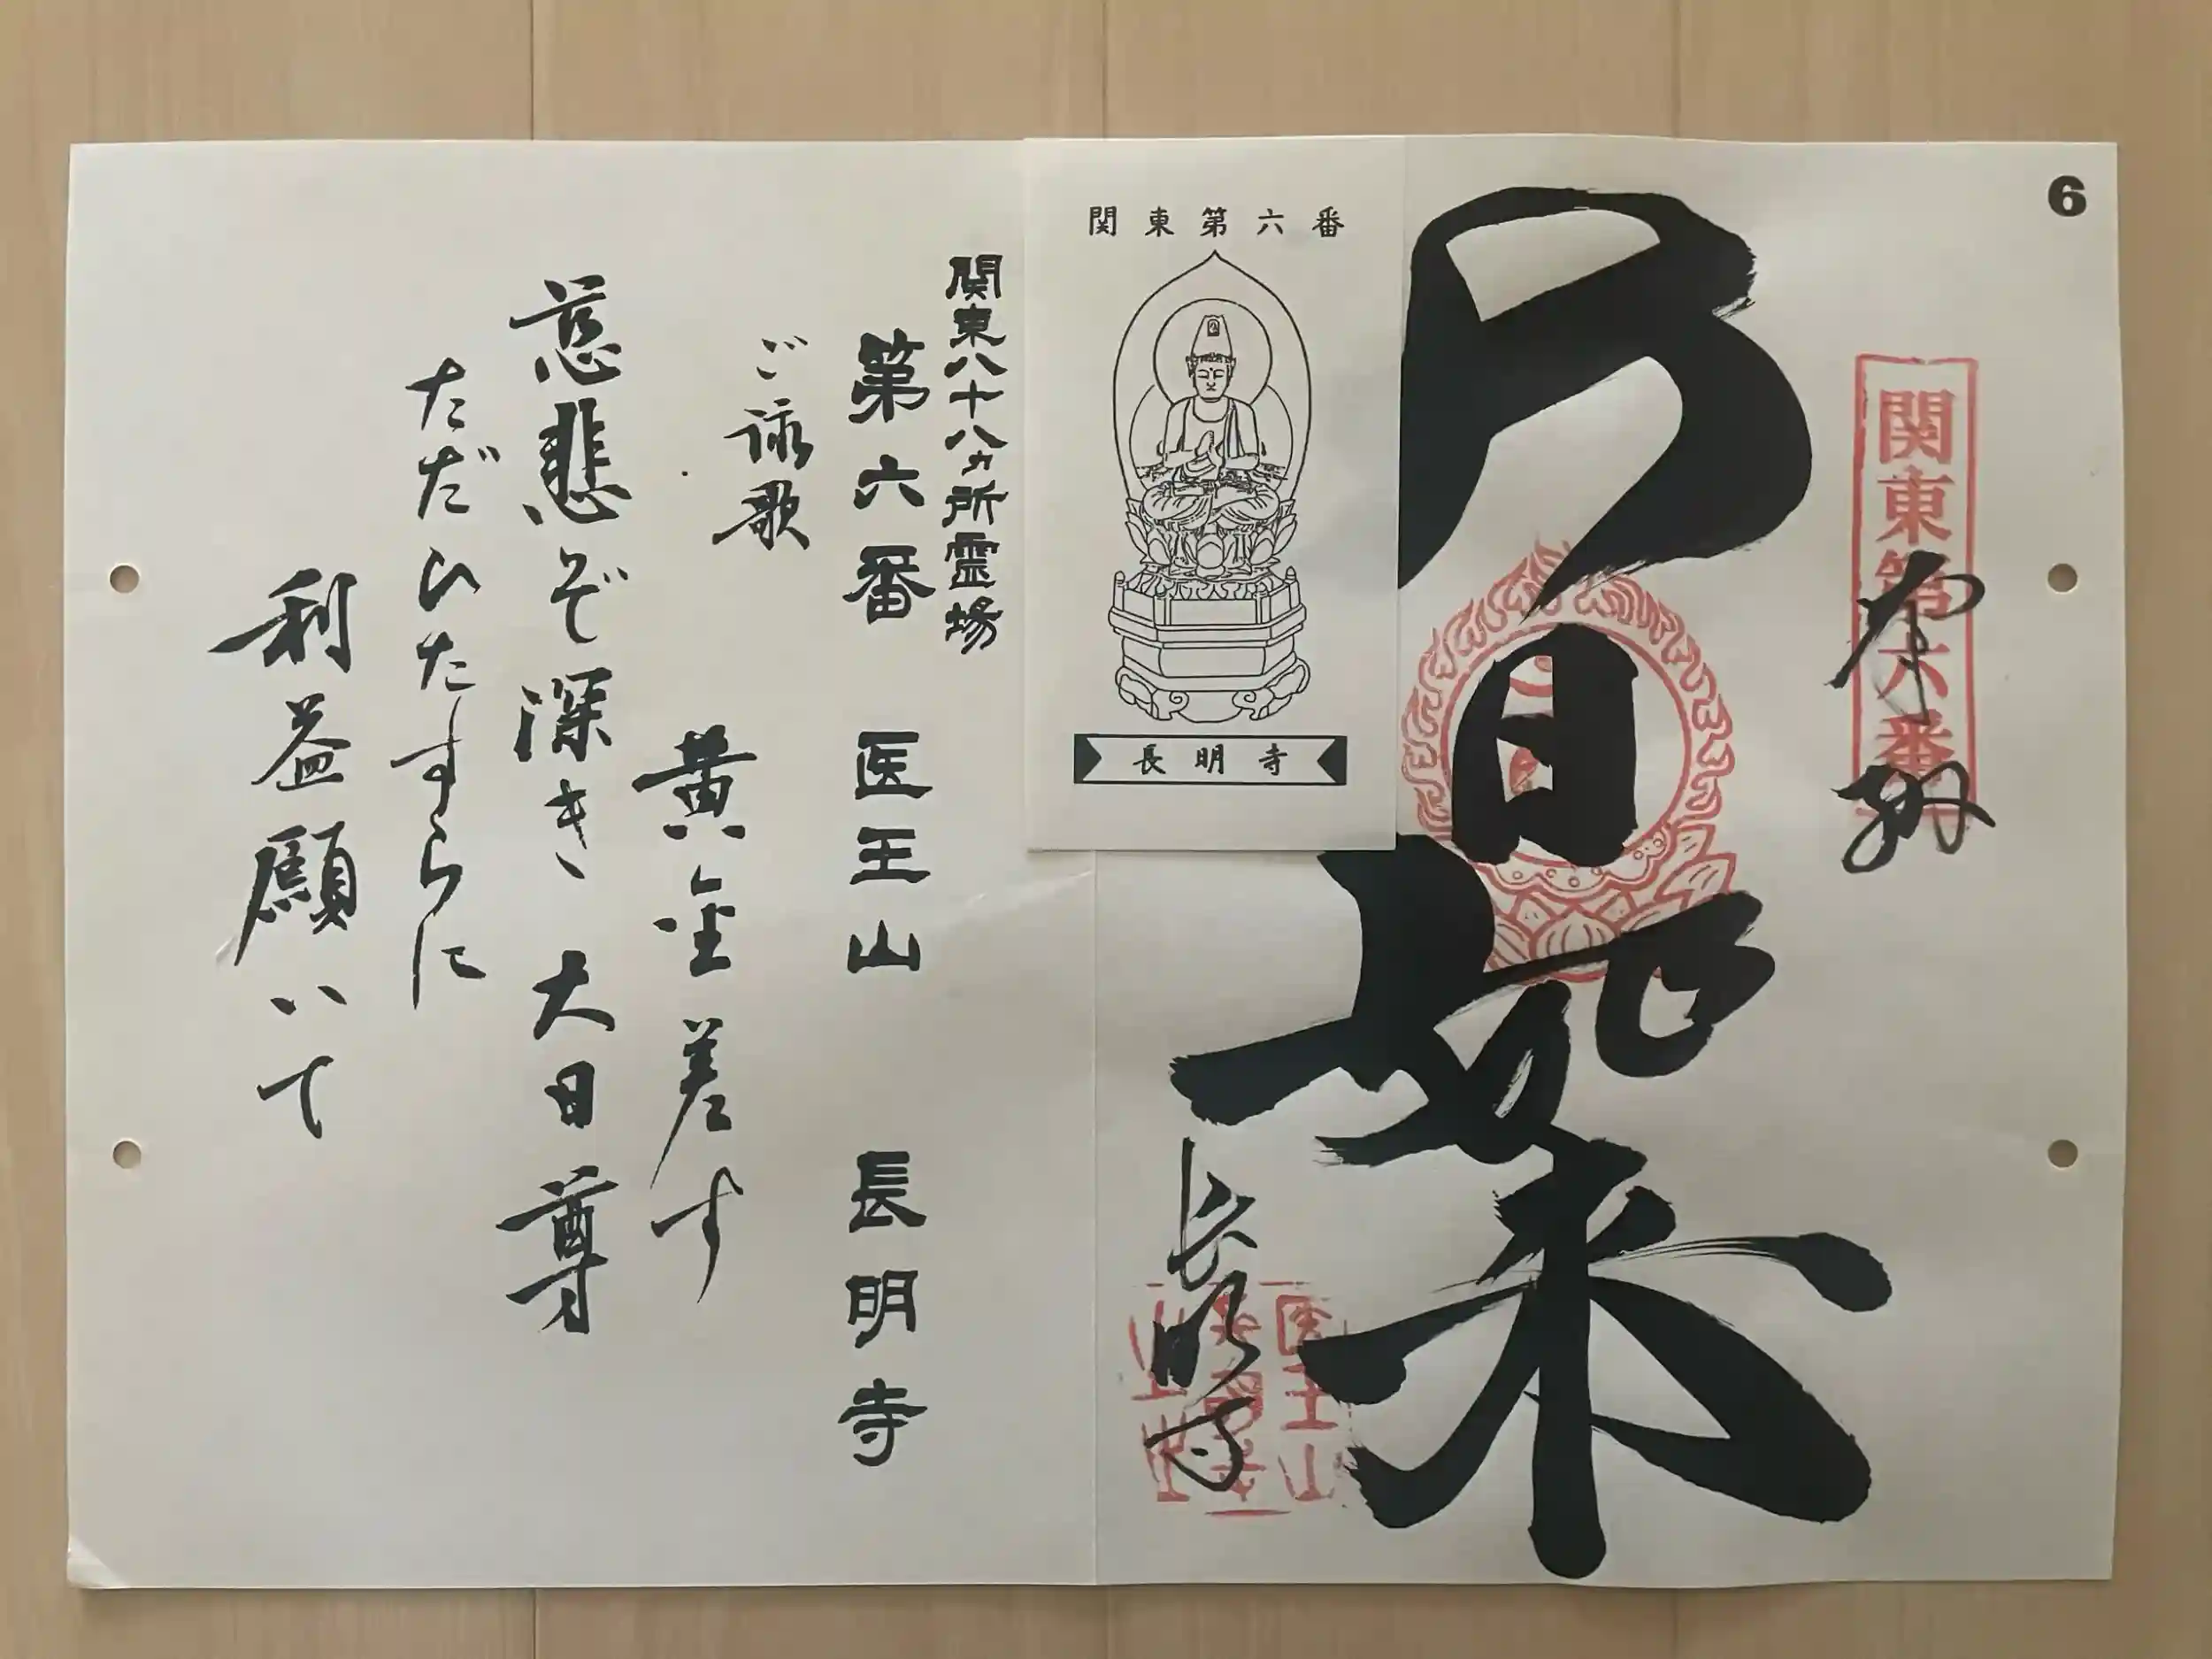 6
関東第六番
奉納
大日如来
医王山
長明寺
長明寺
関東第六番
長明寺
関東八十八ヵ所霊場
第六番 医王山 長明寺
ご詠歌
黄金差す
慈悲ぞ深き 大日尊
ただひたすらに
利益願いて